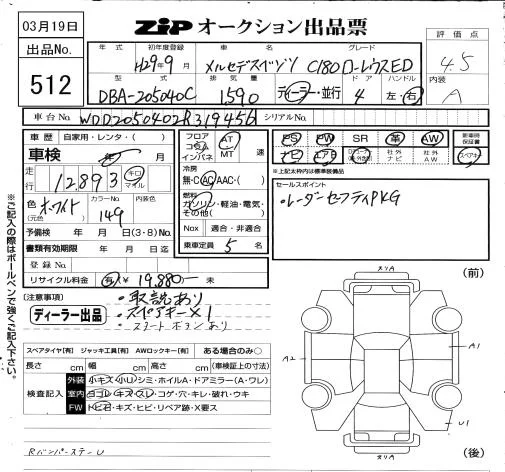 03月19日
ZIP オークション出品票
出品No.
512
評価点
4.5
内装
A
年式 初年度登録 車名 グレード
H29年9月 メルセデスベンツ C180ローレウスED
型式 排気量 ドア ハンドル
DBA-205040C 1,590 ディーラー・並行 4 左・右
車台No. WDD2050402R319456 シリアルNo.
車歴 自家用・レンタ・( )
車検 年 月
走行 12,893 キロ マイル
色 (元色) ホワイト カラーNo. 149 内装色
予備検 年 月 日(3・8)No.
書類有効期限 年 月 日迄
登録No.
リサイクル料金 有 ¥19,880- 未
フロア コラム インパネ AT MT 速
冷房
無・C・AC・AAC・( )
燃料
ガソリン・軽油・電気・その他( )
Nox 適合・非適合
乗車定員 5 名
PS PW SR 革 AW 新車時保証書
ナビ エアB 社外ナビ 社外AW スペアキー
*上記太枠内は標準装備品
セールスポイント
・レーダーセーフティPKG
(注意事項)
・取説あり
ディーラー出品
・スペアキー×1
・スマートキーあり
※ご記入の際はボールペンで強くご記入下さい。
スペアタイヤ[有] ジャッキ工具[有] AWロックキー[有] ある場合のみ○
長さ cm 幅 cm 高さ cm (車検証上の寸法)
検査記入
外装 小キズ・小U・シミ・ホイルA・ドアミラー(A・ワレ)
室内 ヨゴレ・キズ・スレ・コゲ・穴・キレ・破れ・ウキ
FW トビ石・キズ・ヒビ・リペア跡・X要ス
RバンパーステーU
スリA
(前)
A2
A1
U1
スリA
(後)